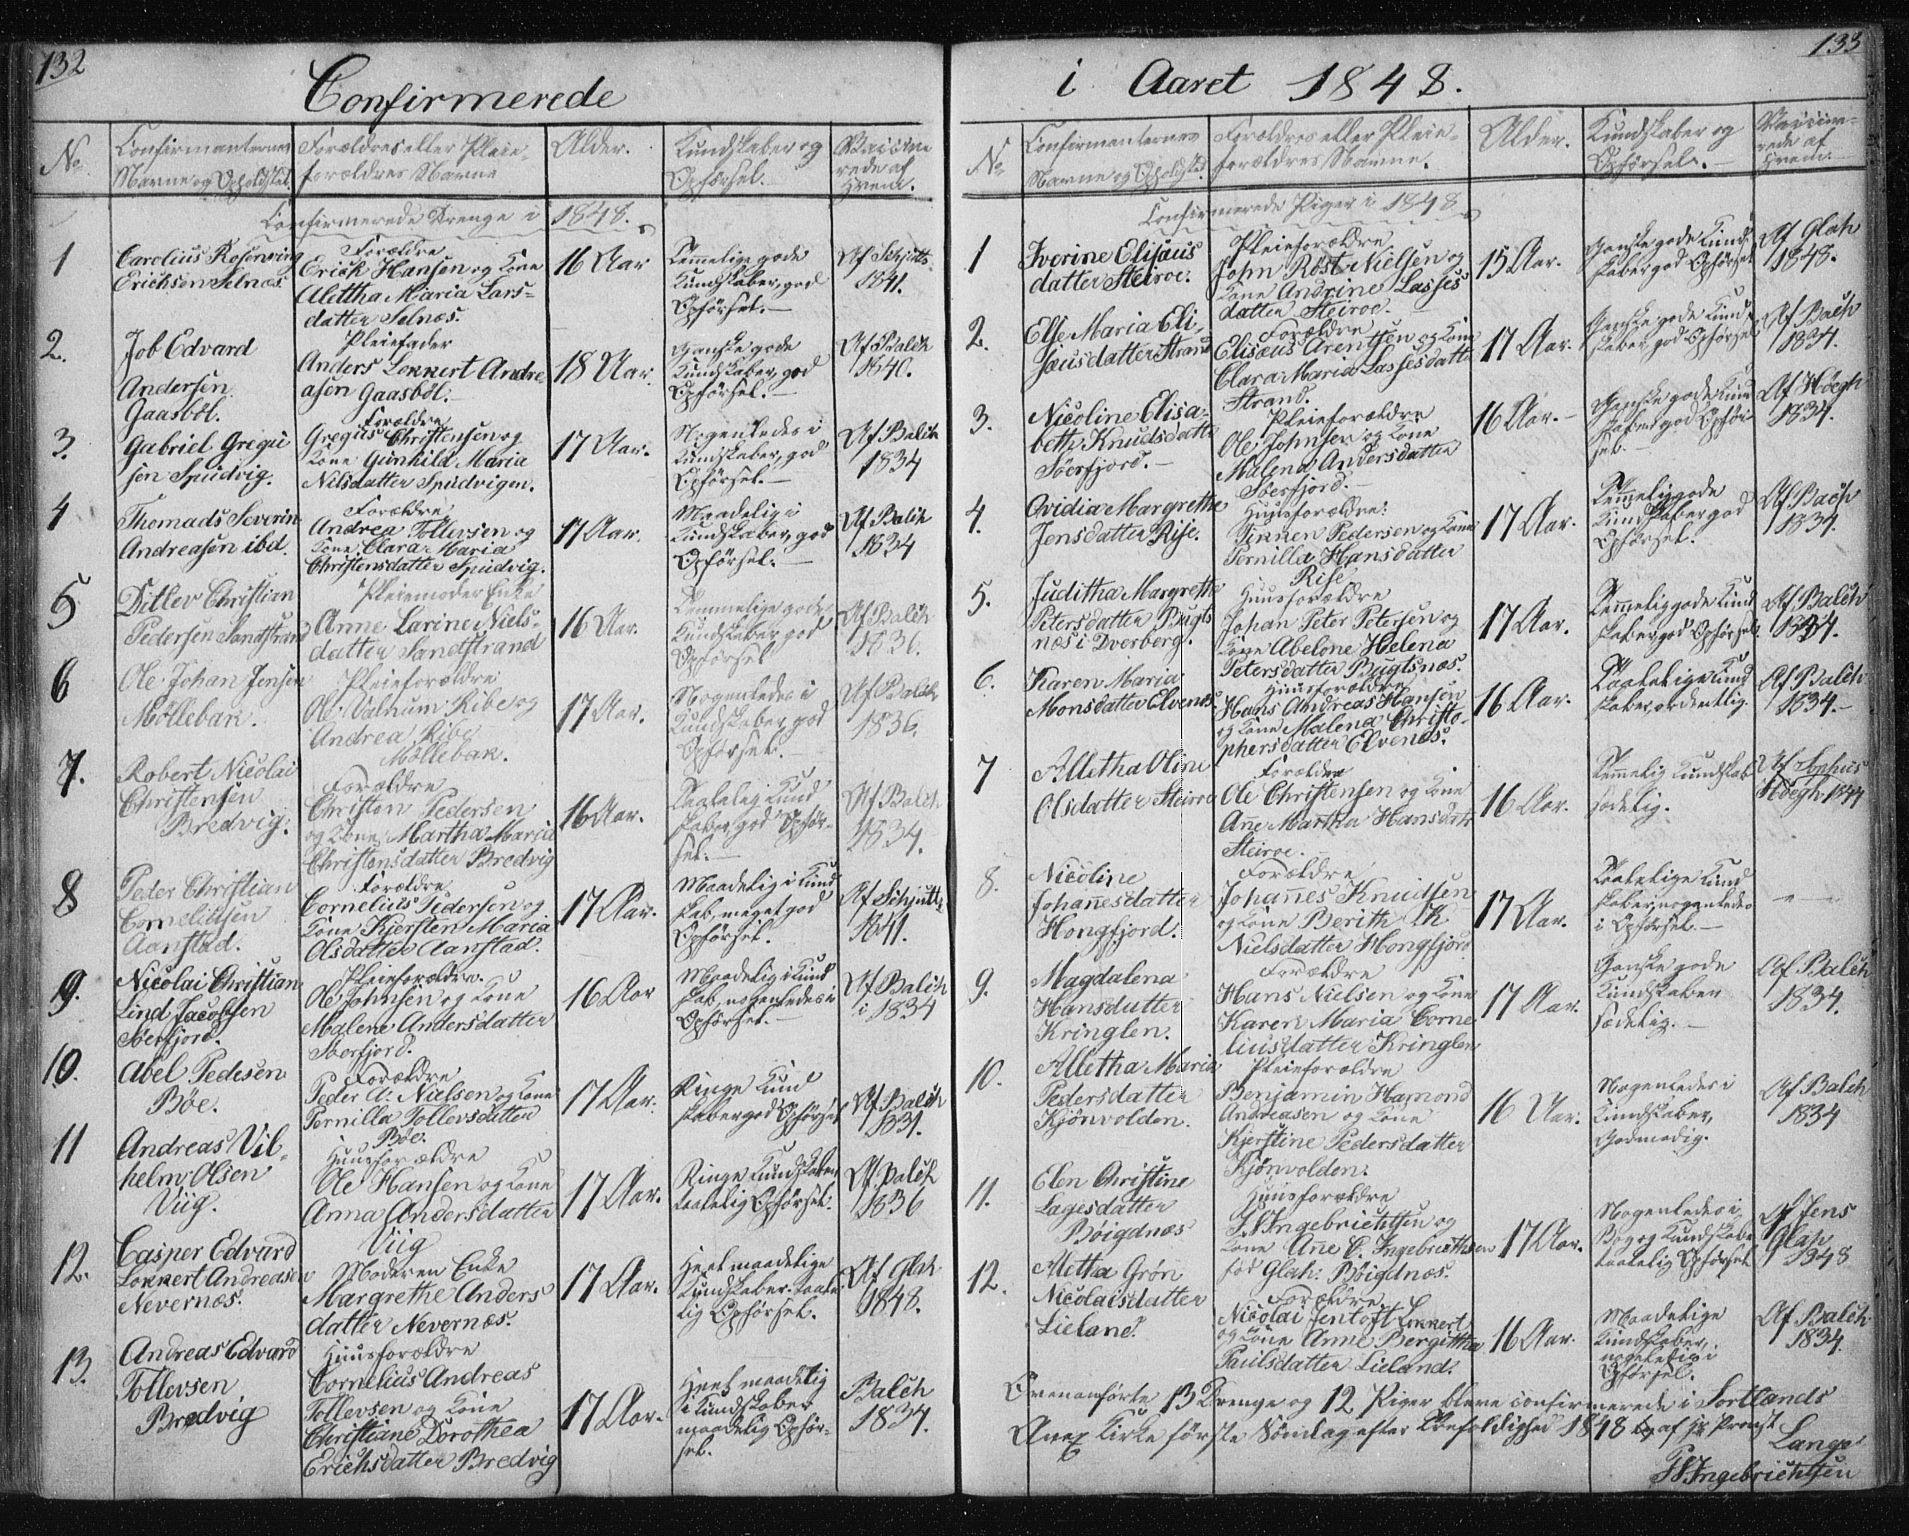 132
Confirmerede
No.
Confirmanternes
Navne og Opholdsted.
Forældres eller Pleie-
forældres Navne
Alder.
Kundskaber og
Opførsel.
Vaccine
rede af
Hvem.
Confirmerede Drenge i 1848.
1
Carolius Rosenving
Erichsen Selnæs
Forældre
Erich Hansen og Kone
Alettha Maria Lars-
datter Selnæs.
16 Aar
Temmelige gode
Kundskaber, god
Opførsel.
Af Schjutts
1841.
2.
Job Edvard
Andersen
Gaasböl.
Pleiefader
Anders Lokkert Andre
asen Gaasböl.
18 Aar.
Ganske gode
Kundskaber, god
Opførsel.
Af Balch
1840.
3.
Gabriel Gregu
sen Spudvig.
Forældre
Gregus Christensen og
Kone Gunhild Maria
Nilsdatter Spudvigen.
17 Aar.
Nogenledes i
Kundskaber, god
Opførsel.
Af Balch
1834
4
Thomads Severin
Andreasen ibd.
Forældre
Andrea Tollevsen og
Kone Clara Maria
Christensdatter Spudvig.
17 Aar.
Maadelig i
Kundskaber, god
Opførsel.
Af Balch
1834
5
Ditlev Christian
Pedersen Sandstrand
Pleiemoder Enke
Anne Larine Niels-
datter Sandstrand
16 Aar.
Temmelige gode
Kundskaber, god
Opførsel
Af Balch
1836.
6
Ole Johan Jensen
Möllebak.
Pleieforældre
Ole Valnum Ribe og
Andrea Ribe
Möllebak.
17 Aar.
Nogenledes i
Kundskaber, god
Opførsel.
Af Balch
1836.
7.
Robert Nicolai
Christensen
Bredvig.
Forældre
Christen Pedersen
og Kone Martha Maria
Christensdatter Bredvig
16 Aar.
Taalelig Kund
skaber, god Opfør-
sel.
Af Balch
1834.
8
Peder Christian
Corneliusen
Aanstad.
Forældre
Cornelius Pedersen og
Kone Kjersten Maria
Olsdatter Aanstad.
17 Aar.
Maadelig i Kund
skab, meget god
Opførsel.
Af Schjutts
1841.
9.
Nicolai Christian
Lind Jacobsen
Söerfjord.
Pleieforældre.
Ole Johnsen og Kone
Malene Andersdatter
Söerfjord.
16 Aar
Maadelig i Kund
skab, nogenledes i
Opførsel.
Af Balch
i 1834
10.
Abel Pedesen
Böe.
Forældre
Peder A. Nielsen og Kone
Pernilla Tollevsdatter
Böe.
17 Aar.
Ringe Kund
skaber god Opførsel
Af Balch
1831.
11
Andreas Vil-
helm Olsen
Viig.
Huusforældre
Ole Hansen og Kone
Anna Andersdatter
Viig
17 Aar.
Ringe Kundskaber
taalelig Opførsel.
Af Balch
1836
12.
Casper Edvard
Lokkert Andreasen
Nevernæs.
Moderen Enke
Margrethe Anders
datter Nevernæs.
17 Aar.
Heel maadelige
Kundskaber, taale
lig Opførsel.
Af Glah
1848.
13.
Andreas Edvard
Tollevsen
Bredvig
Huusforældre
Cornelius Andreas
Tollevsen og Kone
Christiane Dorothea
Erichsdatter Bredvig
17 Aar.
Heel maadelig
i Kundskaber
maadelig Opfør-
sel.
Balch
1834.
133
i Aaret 1848.
No
Confirmanternes
Navne og Opholdsted.
Forældres eller Pleie-
forældres Navne.
Alder.
Kundskaber og
Opførsel.
Vaccine-
rede af
Hvem.
Confirmerede Piger i 1848
1
Iverine Elisæus
datter Steiroe.
Pleieforældre
John Röst Nielsen og
Kone Andrine Lasses
datter Steiroe.
15 Aar.
Ganske gode Kund
skaber god Opførsel
Af Glah
1848.
2.
Else Maria Eli-
sæusdatter Strand
Forældre
Elisæus Arentsen og Kone
Clara Maria Lassesdatter
Strand.
17 Aar.
Ganske gode Kund
skaber, god Opførsel
Af Balch
1834.
3.
Nicoline Elisa-
beth Knudsdatter
Söerfjord.
Pleieforældre
Ole Johnsen og Kone
Malena Andersdatter
Söerfjord.
16 Aar.
Ganske gode Kund
skaber, god Opfør
sel.
Af Höegh
1834.
4.
Ovidia Margrethe
Jensdatter Rise.
Huusforældre:
Finken Pedersen og Kone
Pernilla Hansdatter
Rise
17 Aar.
Temmelig gode
Kundskaber god
Opførsel.
Af Balch
1834.
5.
Juditha Margrethe
Petersdatter Bugts
næs i Dverberg.
Huusforældre
Johan Peter Petersen og
Kone Abelone Helena
Petersdatter Bugtsnæs.
17 Aar.
Temmelig gode Kund
skaber, god Opførsel.
Af Balch
1834.
6.
Karen Maria
Monsdatter Elvenæs
Huusforældre
Hans Andreas Hansen
og Kone Malena Christo-
phersdatter Elvenæs.
16 Aar.
Taalelige Kund
skaber, ordentlig.
Af Balch
1834.
7
Alletha Oline
Olsdatter Steiroe
Forældre
Ole Christensen og Kone
Añe Martha Hansdatr
Steiroe.
16 Aar.
Temmelig Kundskab
sædelig.
Af Sophus
Höegh 1844
8.
Nicoline
Johañesdatter
Hongfjord.
Forældre
Johañes Knudsen
og Kone Berith
Nielsdatter Hongfjord
17 Aar.
Taalelige Kund
skaber, nogenledes
i Opførsel.
9.
Magdalena
Hansdatter
Kringlen.
Forældre
Hans Nielsen og Kone
Karen Maria Corne
liusdatter Kringlen
17 Aar.
Ganske gode
Kundskaber
sædelig.
Af Balch
1834.
10.
Alletha Maria
Pedersdatter
Kjönvolden.
Pleieforældre
Benjamin Hamond
Andreasen og Kone
Kjerstine Pedersdatter
Kjönvolden.
16 Aar.
Nogenledes i
Kundskaber,
Godmodig.
Af Balch
1834
11.
Elen Christine
Lagesdatter
Böigdnæs
Huusforældre
P. S. Ingebrichtsen og
Kone Añe C. Ingebricthsen
fød Glah: Böigdnæs.
17 Aar.
Nogenledes i
Bog og Kundskaber
taalelig Opførsel
Af Jens
Glah
1848
12.
Aletta Grön
Nicolaisdatter
Lieland.
Forældre
Nicolai Jentoft Lokkert
og Kone Anne Bergittha
Paulsdatter Lieland.
16 Aar.
Maadelige
Kundskaber,
nogenledes i
Opførsel.
Af Balch
1834.
Ovenanførte 13 Drenge og 12 Piger bleve confirmerede i Sortlands
Anex Kirke første Söndag efter Trefoldighed 1848 af Hr Provst
Lange
P S Ingebrichtsen